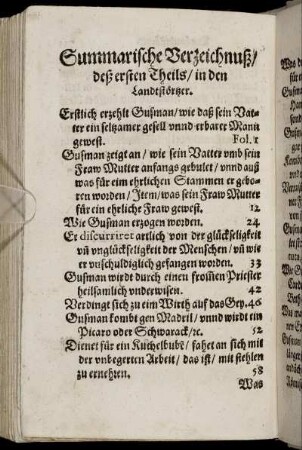 Summarische Verzeichnuß/
deß ersten Theils/ in den
Landtstörtzer.
Erstlich erzehlt Gußman/ wie daß sein Vat-
ter ein seltzamer gesell vnnd erbarer Mann
gewest. Fol. 1
Gußman zeigt an/ wie sein Vatter vmb sein
Fraw Mutter anfangs gebulet/ vnnd auß
was für eim ehrlichen Stammen er gebo-
ren worden/ Item/ was sein Fraw Mutter
für ein ehrliche Fraw gewest. 12
Wie Gußman erzogen worden. 24
Er discurriret artlich von der glückseligkeit
vñ vnglückseligkeit der Menschen/ vñ wie
er vnschuldiglich gefangen worden. 33
Gußman wirdt durch einen frommen Priester
heilsamlich vnderwisen. 42
Verdingt sich zu eim Wirth auf das Gey. 46
Gußman kombt gen Madril/ vnnd wirdt ein
Picaro oder Schwarack/ꝛc. 52
Dienet für ein Kuchelbube/ fahet an sich mit
der vnbegerten Arbeit/ das ist/ mit stehlen
zu ernehren. 58
Was